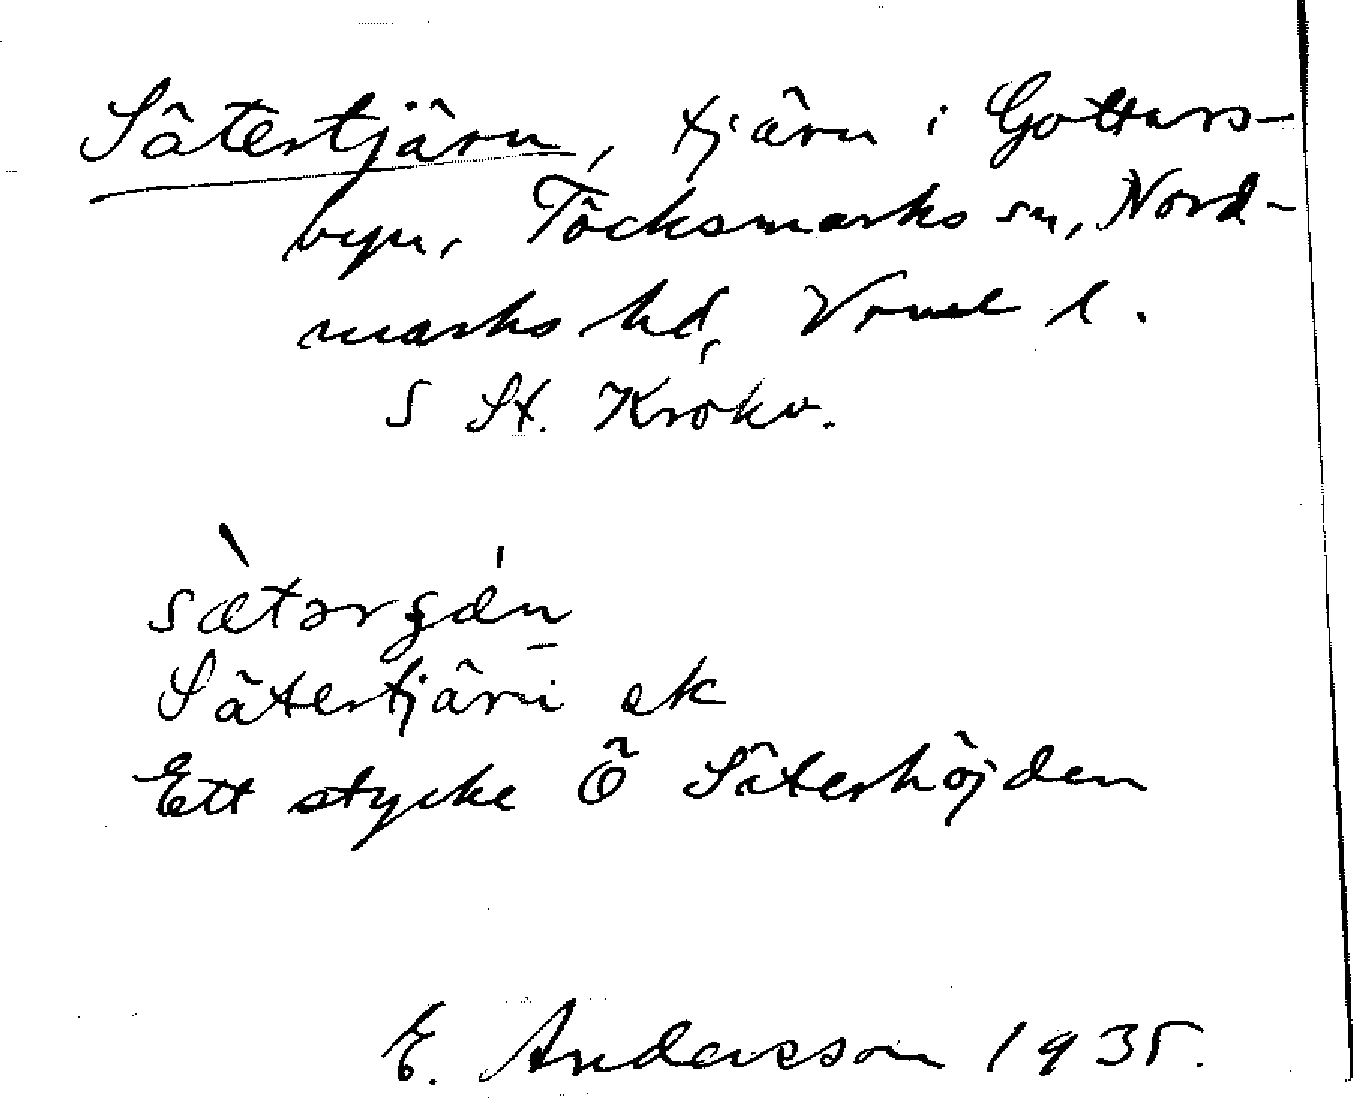 Sätertjärn, tjärn i Gottars-
byn, Töcksmarks sn, Nord-
marks hd, Vrml l.
S St. Krökv.
sæ̀tərʂǽn
Sätertjärn ek
Ett stycke Ö Säterhöjden
E. Andersson 1935.